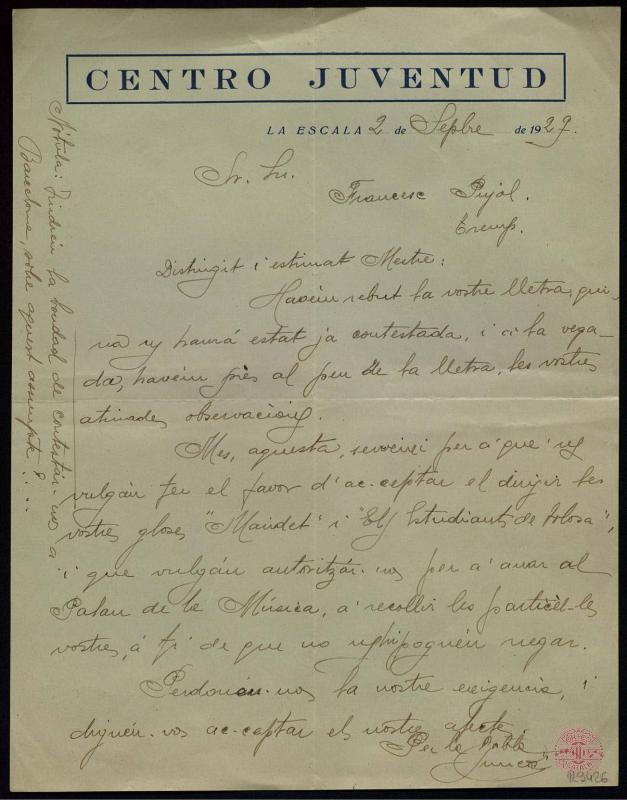 CENTRO JUVENTUD
LA ESCALA 2 de Sepbre de 1929.
Sr. Sr.
Francesc Pujol.
Tremp.
Distingit i estimat Mestre:
Havèm rebut la vostre lletra, qui-
na ja haurá estat ja contestada, i a la vega-
da, havèm près al peu de la lletra, les vostres
atinades observacions.
Mes, aquesta, serveixi per a que
vulgán fer el favor d'ac-ceptar el dirigir les
vostres gloses "Maridet" i "Els Estudiants de Tolosa",
i que vulgán autoritzár-nos per a anar al
Palau de la Música, a recollir les particèl-les
vostres, á fi de que no puguén negar.
Perdonin-nos la nostre exigencia, i
dignén-vos ac-ceptar els nostre afecte.
Per la Cobla
Nótula: Tindrien la bondad de contestár-nos a
Barcelona, sobre aquest assumpte? ...
R9426